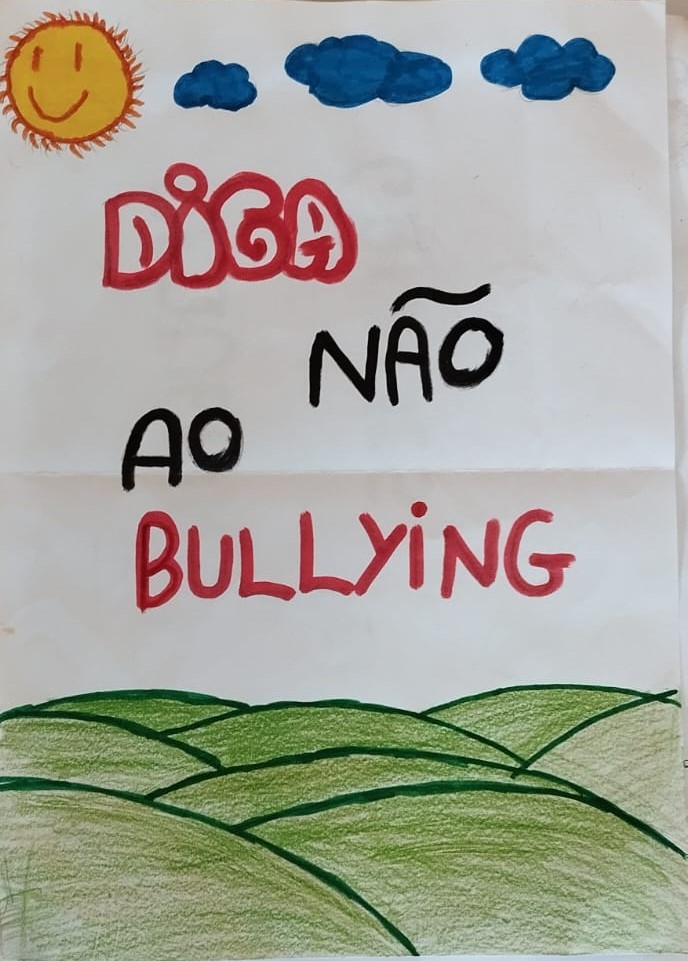 DiGA
NÃO
AO
BULLYiNG